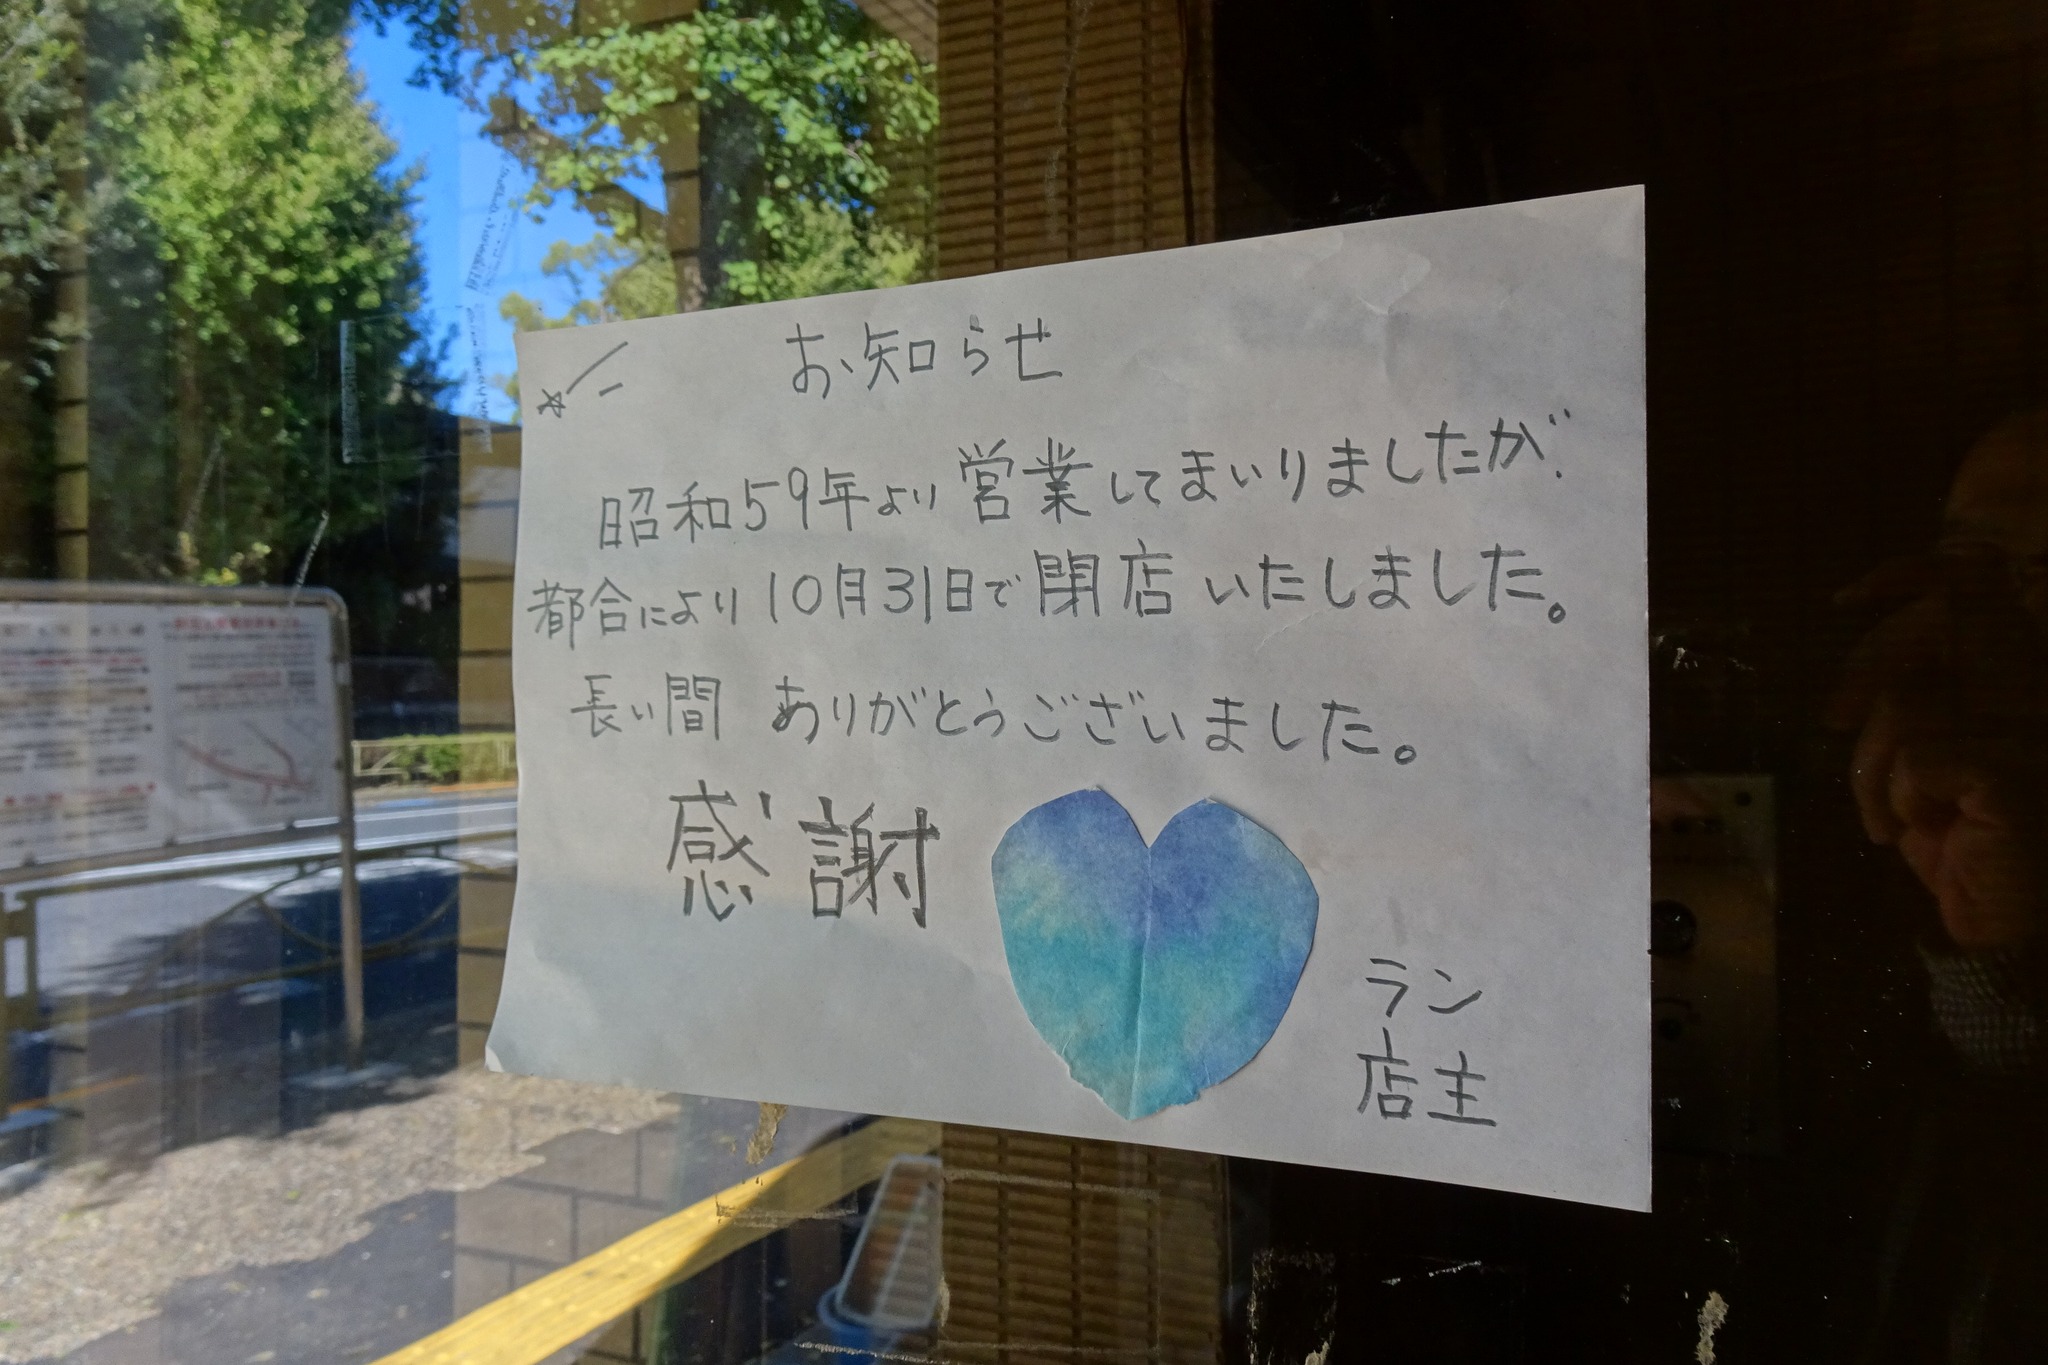 お知らせ
昭和59年より営業してまいりましたが、
都合により10月31日で閉店いたしました。
長い間 ありがとうございました。
感謝
ラン
店主